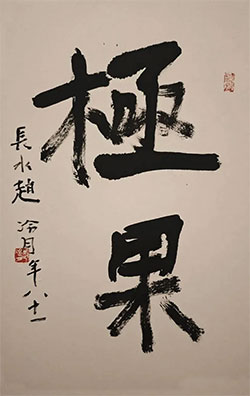 極果
長水趙冷月年八十一